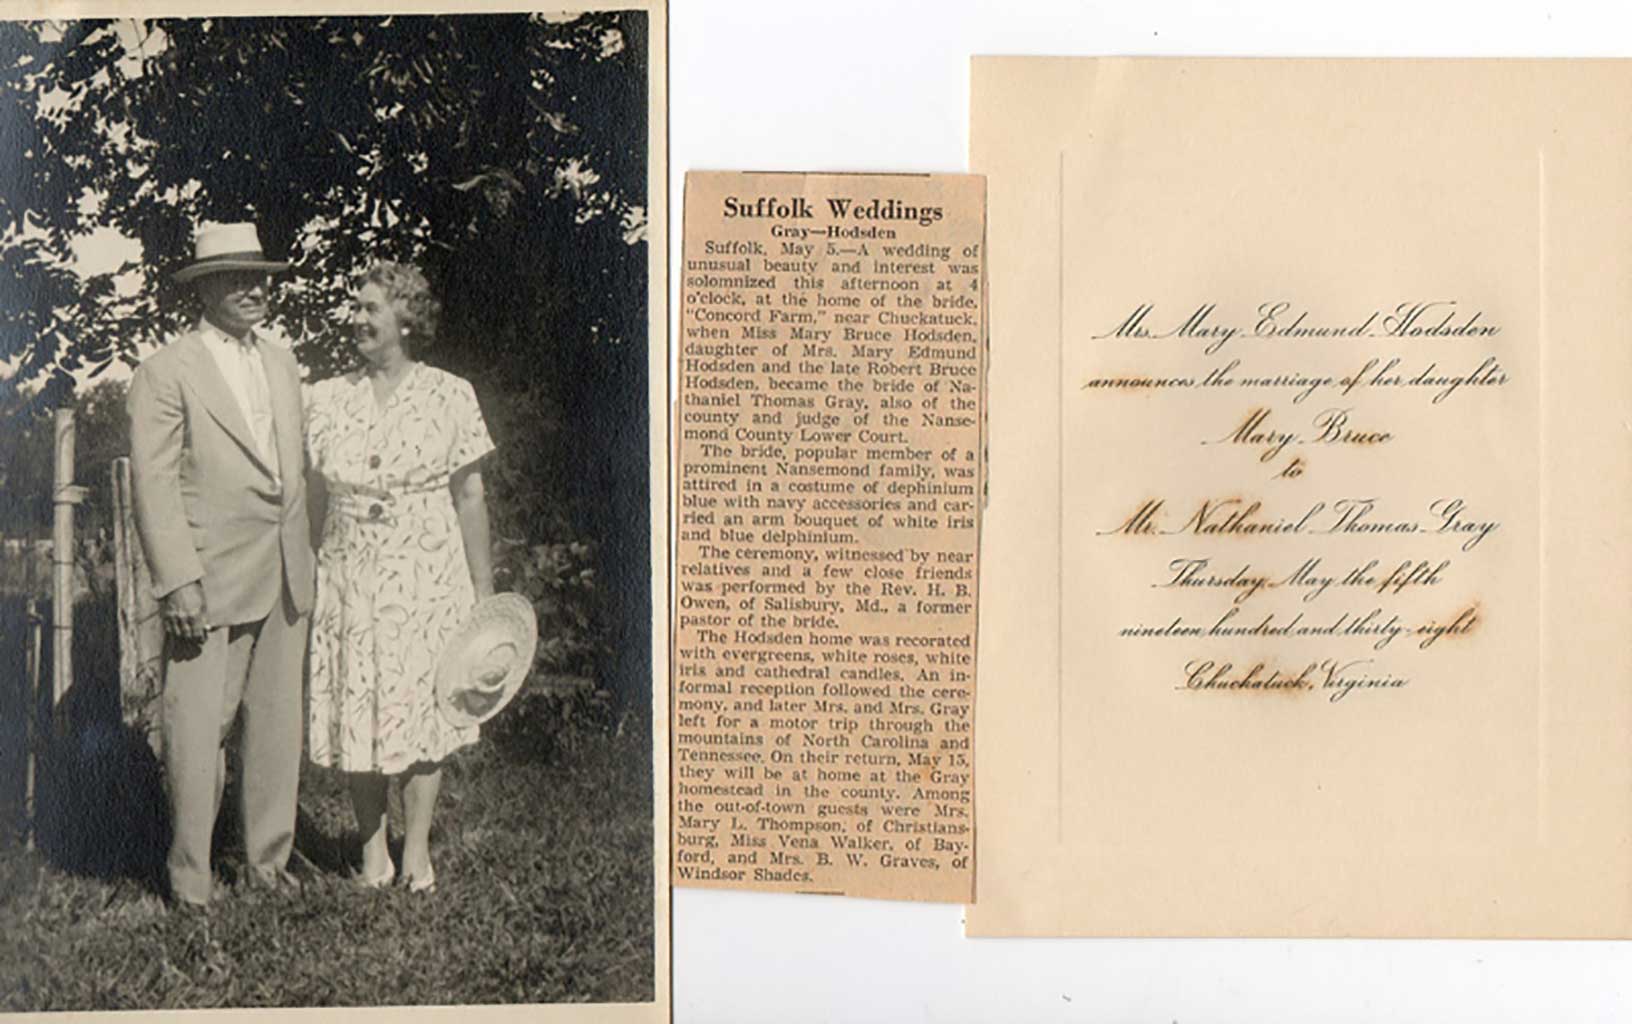 Suffolk Weddings
Gray—Hodsden
Suffolk, May 5.—A wedding of
unusual beauty and interest was
solomnized this afternoon at 4
o'clock, at the home of the bride,
"Concord Farm," near Chuckatuck,
when Miss Mary Bruce Hodsden,
daughter of Mrs. Mary Edmund
Hodsden and the late Robert Bruce
Hodsden, became the bride of Na-
thaniel Thomas Gray, also of the
county and judge of the Nanse-
mond County Lower Court.
The bride, popular member of a
prominent Nansemond family, was
attired in a costume of dephinium
blue with navy accessories and car-
ried an arm bouquet of white iris
and blue delphinium.
The ceremony, witnessed by near
relatives and a few close friends
was performed by the Rev. H. B.
Owen, of Salisbury, Md., a former
pastor of the bride.
The Hodsden home was recorated
with evergreens, white roses, white
iris and cathedral candles. An in-
formal reception followed the cere-
mony, and later Mrs. and Mrs. Gray
left for a motor trip through the
mountains of North Carolina and
Tennessee. On their return, May 15,
they will be at home at the Gray
homestead in the county. Among
the out-of-town guests were Mrs.
Mary L. Thompson, of Christians-
burg, Miss Vena Walker, of Bay-
ford, and Mrs. B. W. Graves, of
Windsor Shades.
Mrs. Mary Edmund Hodsden
announces the marriage of her daughter
Mary Bruce
to
Mr. Nathaniel Thomas Gray
Thursday, May the fifth
nineteen hundred and thirty-eight
Chuckatuck, Virginia